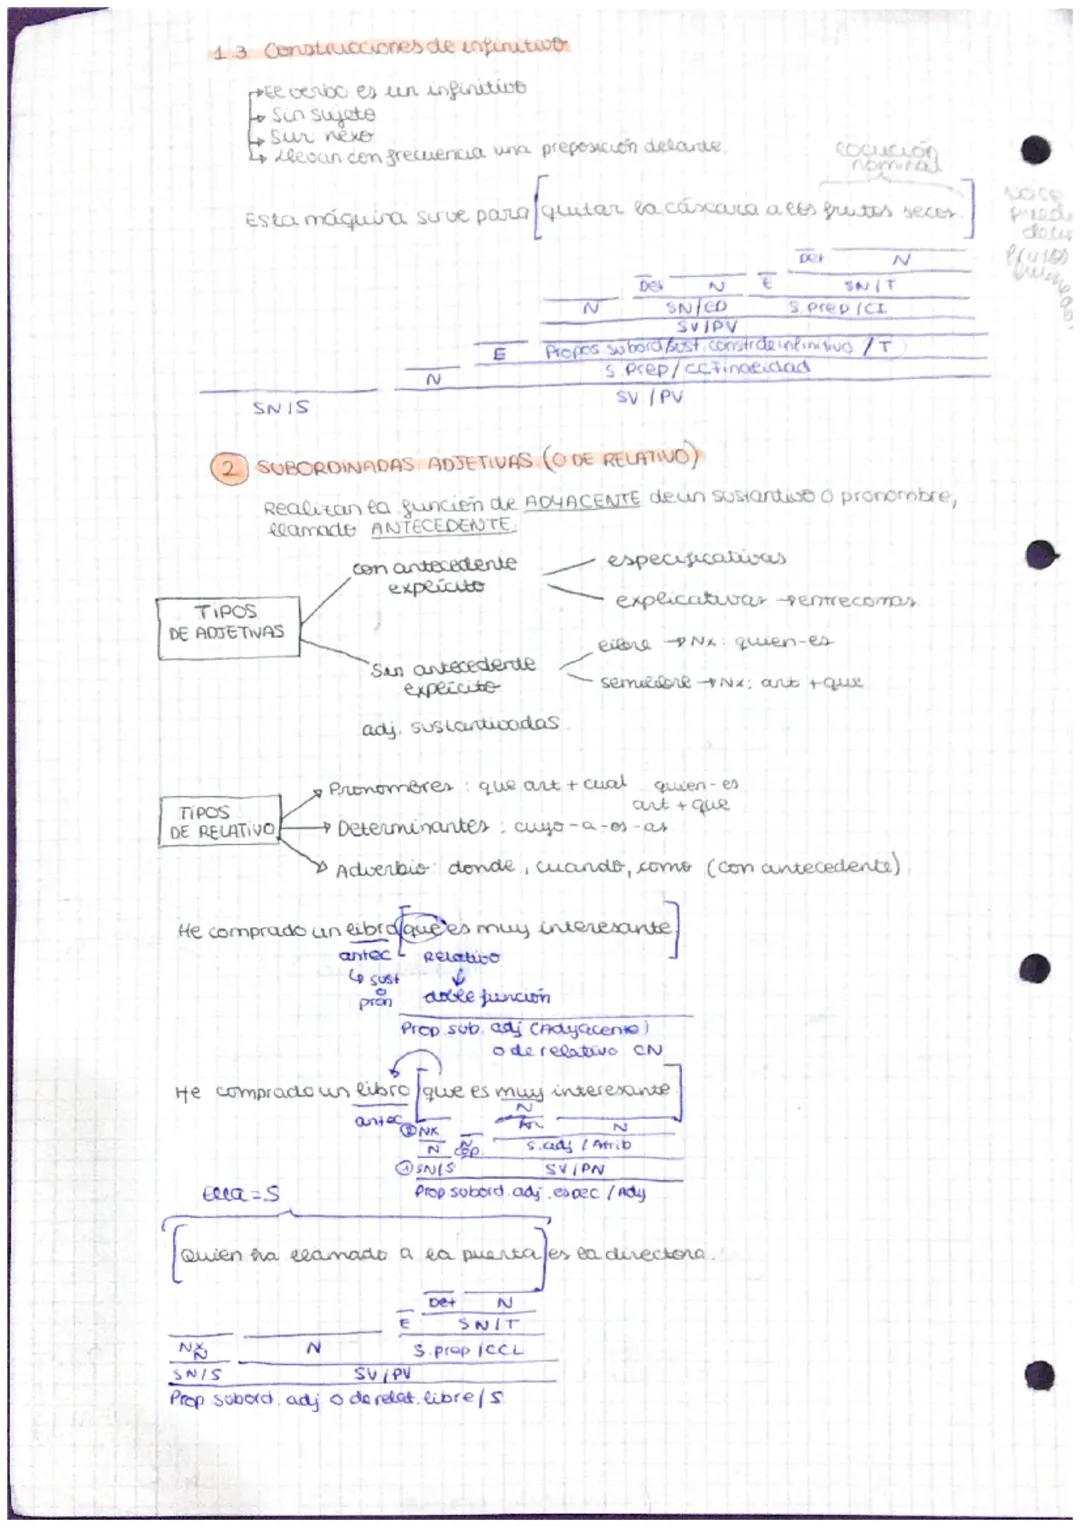 1.3 Construcciones de infinitivo
El verbo es un infinitivo
Sin sujeto
Sin nexo
Llevan con frecuencia una preposición delante.
locución
nominal
Esta máquina sirve para [quitar la cáscara a los frutos secos.]
Det N
Det N E SN/T
N SN/CD S.Prep/CI
SV/PV
E Propos subord/sust. constr de infinitivo /T
N S.Prep/CCFinalidad
SN/S SV/PV
2 SUBORDINADAS ADJETIVAS (O DE RELATIVO)
Realizan la función de ADYACENTE de un sustantivo o pronombre,
llamado ANTECEDENTE.
TIPOS
DE ADJETIVAS
con antecedente
explícito
especificativas
explicativas → entrecomas
Sin antecedente
explícito
libre → Nx: quien-es
semilibre → Nx: art + que
adj. sustantivadas
TIPOS
DE RELATIVO
Pronombres: que art + cual quien-es
art + que
Determinantes: cuyo-a-os-as
Adverbio: donde, cuando, como (con antecedente)
He comprado un libro [que es muy interesante]
antec Relativo
sust
o
pron
doble función
Prop sub. adj (Adyacente)
o de relativo CN
He comprado un libro [que es muy interesante]
antec N
② NX N
N cop. S.adj / Atrib
① SN/S SV/PN
Prop subord. adj. espec / Ady
Ella = S
[Quien ha llamado a la puerta] es la directora.
Det N
E SN/T
NX N S.prep/CCL
N
SN/S SV/PV
Prop subord. adj o de relat. libre/S